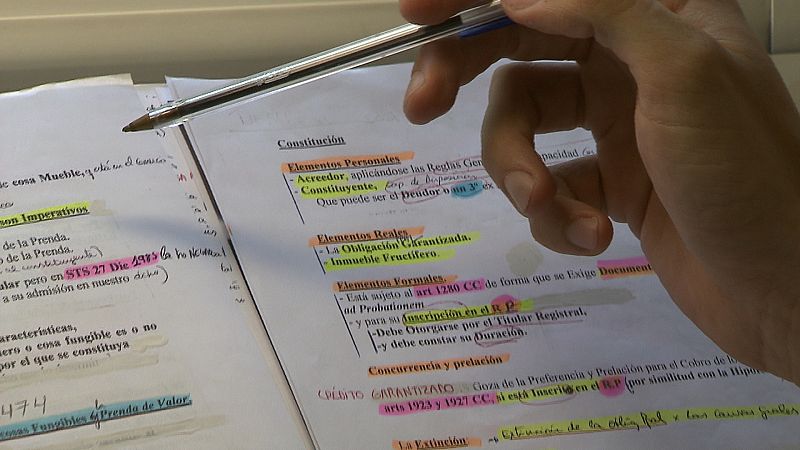 de cosa Mueble, y está en el
son Imperativos
de la Prenda.
o de la Prenda.
el constituyente)
ular pero en STS 27 Dic 1985 la ha
a su admisión en nuestro dcho)
aracterísticas,
nero o cosa fungible es o no
por el que se constituya
1474
osas Fungibles y Prenda de Valor.
Constitución
Elementos Personales
- Acreedor, aplicándose las Reglas Gen capacidad
- Constituyente, cap de Disposición
Que puede ser el Deudor o un 3º ex
Elementos Reales
- La Obligación Garantizada.
- Inmueble Fructífero.
Elementos Formales.
- Está sujeto al art 1280 CC de forma que se Exige Document
ad Probationem
- y para su Inscripción en el R.P
-Debe Otorgarse por el Titular Registral,
-y debe constar su Duración.
Concurrencia y prelación
CRÉDITO GARANTIZADO Goza de la Preferencia y Prelación para el Cobro de
arts 1923 y 1927 CC, si está Inscrito en el R.P (por similitud con la Hipot
La Extinción → Extinción de la oblig Ppal x las causas grales